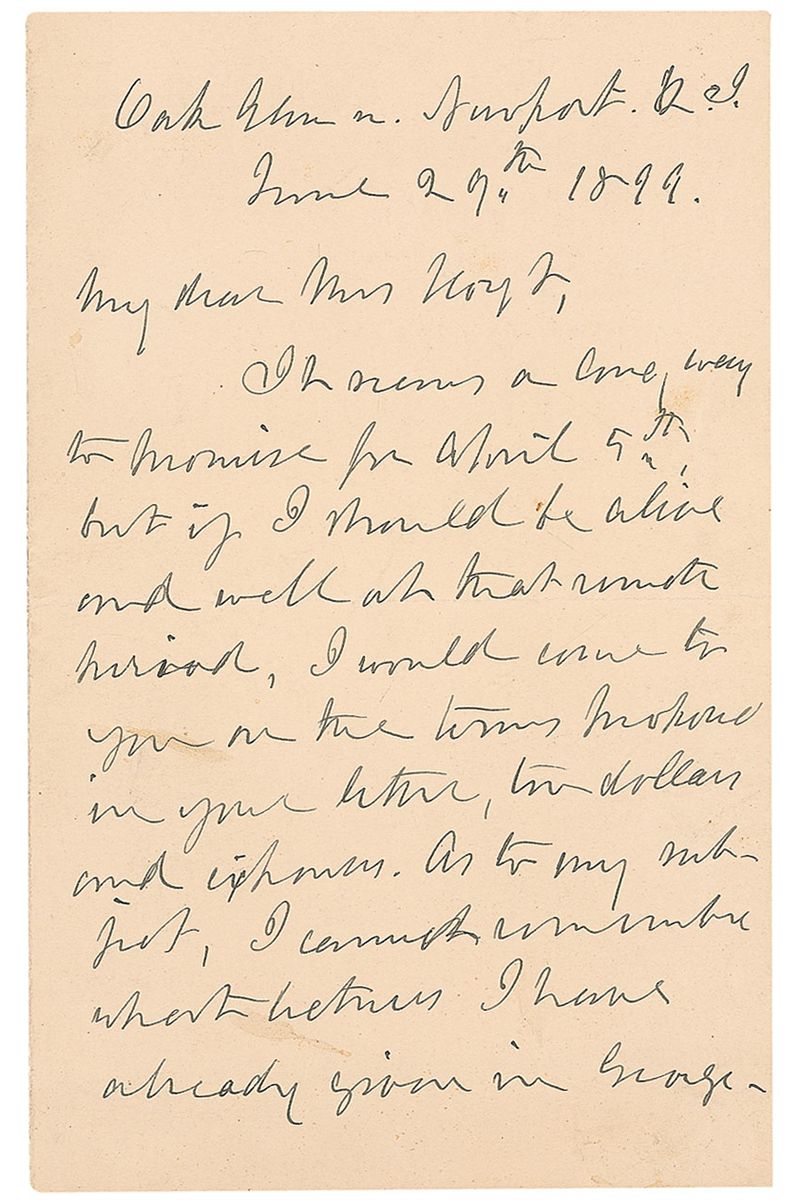 Oak Glen n. Newport. R. I.
June 29th 1899.
My dear Mrs Hoyt,
It seems a long way
to promise for April 5th,
but if I should be alive
and well at that remote
period, I would come to
you on the terms proposed
in your letter, ten dollars
and expenses. As to my sub-
ject, I cannot remember
what lectures I have
already given in George-